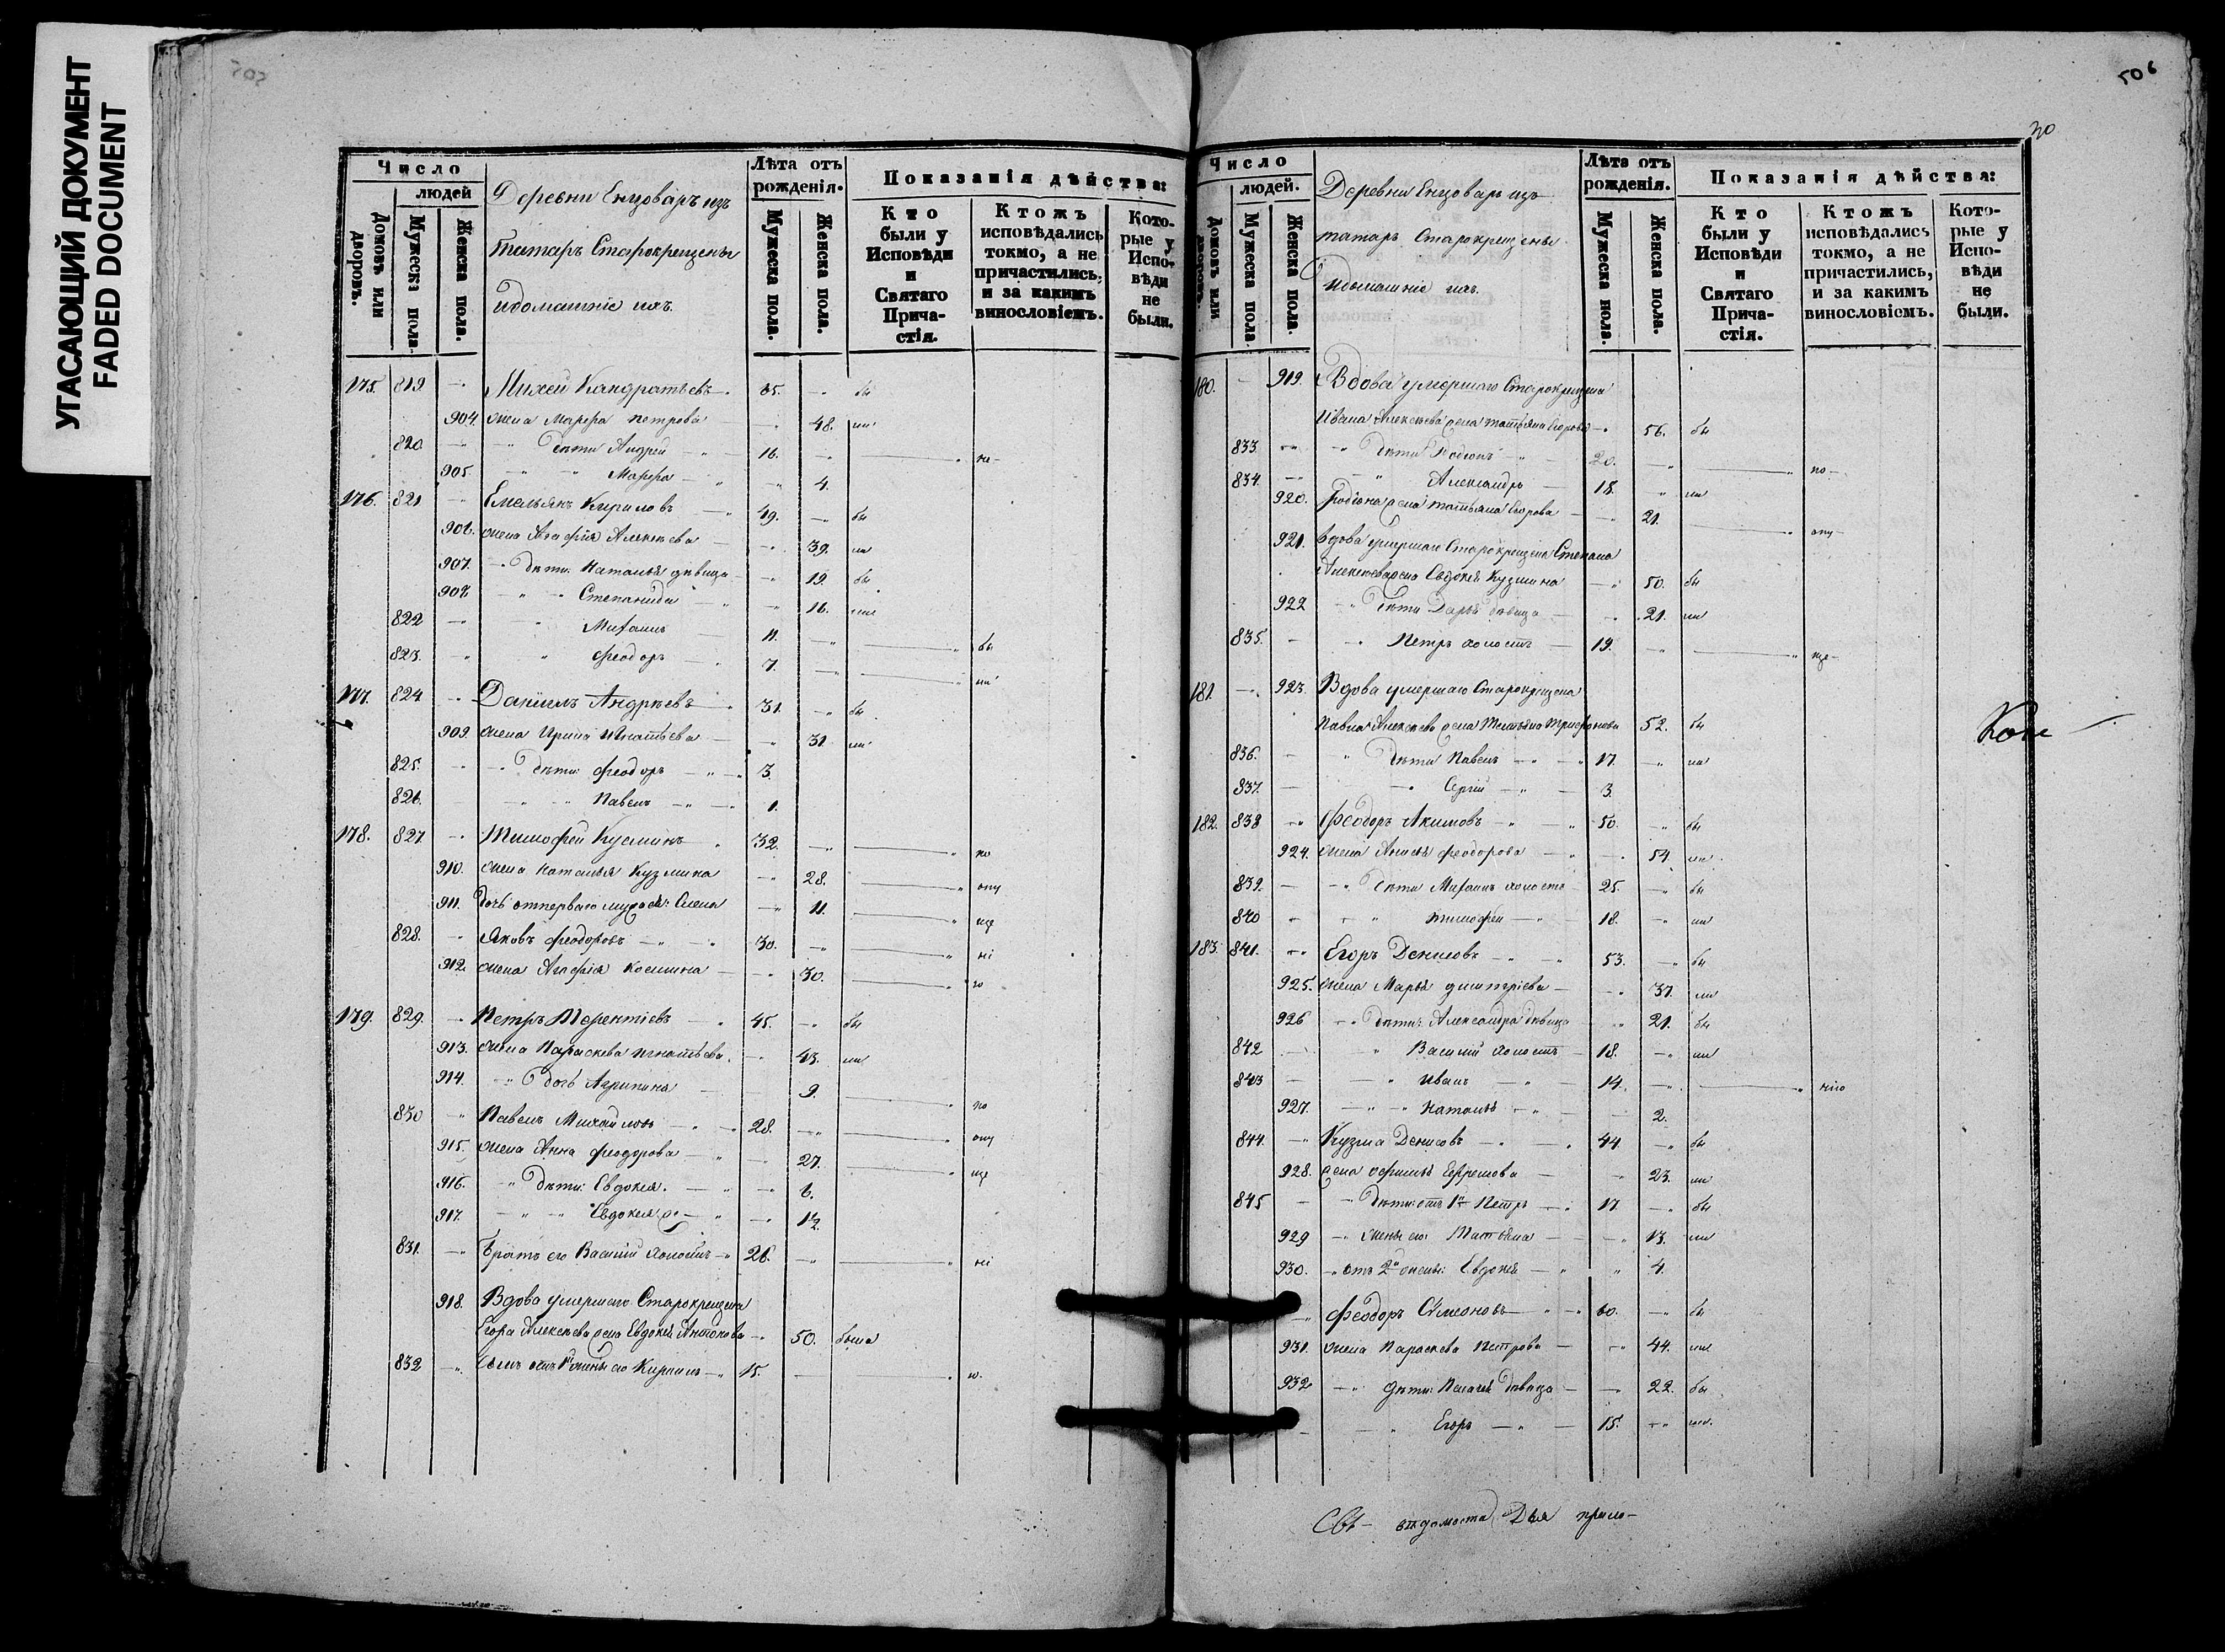 УГАСАЮЩИЙ ДОКУМЕНТ
FADED DOCUMENT
506
30
Число
людей
Домовъ или дворовъ.
Мужеска пола
Женска пола.
Деревни Енцоваръ изъ
татаръ Старокрещены
и домашніе ихъ.
Лѣта отъ рожденія.
Мужеска пола.
Женска пола.
Показанія дѣйства:
Кто были у Исповѣди и Святаго Причастія.
Ктожъ исповѣдались токмо, а не причастились, и за какимъ винословіемъ.
Которые у Исповѣди не были.
175. 819 Михей Кандратьевъ 35. бы
904. жена Марфа Петрова 48. ли
820 дѣти Андрей 16. не
905 Марфа 4
176. 821 Емельянъ Кириловъ 49. бы
906. жена Агафія Алексѣева 39. ли
907. дѣти: Наталья дѣвица 19. бы
908 Степанида 16. ли
822 Михаилъ 11. бы
823. Феодоръ 7. ли
177. 824 Даніилъ Андреевъ 31. бы
909. жена Ирина Игнатьева 31 ли
825. дѣти: Феодоръ 3.
826. Павелъ 1.
178. 827 Тимофей Кусминъ 32. по
910. жена Наталья Кузмина 28. опу
911. дочь отперваго Елена 11. ще
828. Яковъ Феодоровъ 30. ні
912. жена Агафія Космина 30. ю
179. 829. Петръ Терентіевъ 45. бы
913. жена Параскева Игнатьева. 43. ли
914. дочь Агрипина 9. по
830 Павелъ Михайловъ 28. опу
915. жена Анна Феодорова 27. ще
916. дѣти: Евдокея. 6.
917. Евдокея 1/2
831. братъ его Василій холостъ 26. ні
918. Вдова умершаго Старокрещена
Егора Алексѣева жена Евдокея Антонова 50. была
832 сынъ отъ 1й жены его Кирилъ 15. ю.
Число
людей.
Домовъ или дворовъ.
Мужеска пола
Женска пола.
Деревни Енцоваръ изъ
татаръ Старокрещены
и домашніе ихъ.
Лѣта отъ рожденія.
Мужеска пола.
Женска пола.
Показанія дѣйства:
Кто были у Исповѣди и Святаго Причастія.
Ктожъ исповѣдались токмо, а не причастились, и за какимъ винословіемъ.
Которые у Исповѣди не были.
180. 919. Вдова умершаго Старокрещена
Ивана Алексѣева жена Татьяна Егорова 56. бы
833 дѣти Родіонъ 20. по
834. Александръ 18. ли
920. Родіона жена Татьяна Егорова 21. опу
921. вдова умершаго Старокрещена Степана
Алексѣева жена Евдокея Кузмина 50. бы
922 дѣти Дарья дѣвица 21. ли
835. Петръ холостъ 19. ще
181. 923. Вдова умершаго Старокрещена
Павла Алексѣева жена Татьяна Трифонова 52. бы
836. дѣти Павелъ 17 ли
837. Сергій 3.
182. 838 Феодоръ Акимовъ 50. бы
924. жена Анисья Феодорова 54 ли
839. дѣти Михаилъ холостъ 25. бы
840 Тимофей 18. ли
183. 841. Егоръ Денисовъ 53. бы
925. жена Марья Дмитріева 37. ли
926 дѣти: Александра дѣвица 21. бы
842 Василій холостъ 18. ли
843 Иванъ 14. нію
927. Наталья 2.
844. Кузма Денисовъ 44. бы
928. жена Ефремова 23. ли
845 дѣти: отъ 1й Петръ 17 бы
929 жены его Татьяна 13. ли
930. отъ 2й жены: Евдокея 4.
Феодоръ Симеоновъ 60. бы
931. жена Параскева Петрова 44. ли
932 дѣти: Пелагея дѣвица 22. бы
Егоръ 15. ли